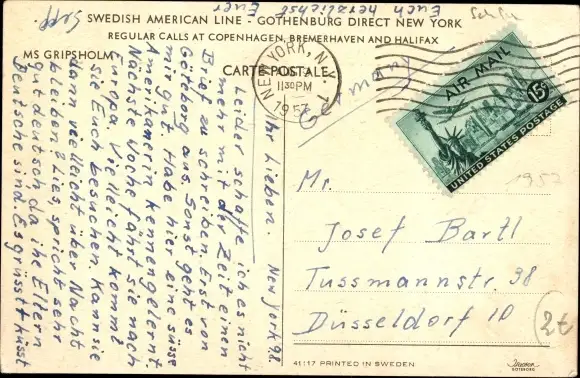 SWEDISH AMERICAN LINE - GOTHENBURG DIRECT NEW YORK
REGULAR CALLS AT COPENHAGEN, BREMERHAVEN AND HALIFAX
MS GRIPSHOLM
CARTE POSTALE
NEW YORK, N.Y.
11:30 PM
1957
AIR MAIL
15¢
UNITED STATES POSTAGE
Germany
1957
New York 9.8.
Ihr Lieben.
Leider schaffe ich es nicht
mehr mit der Zeit einen
Brief zu schreiben. Erst von
Göteborg aus. Sonst geht es
mir gut. Habe hier eine süsse
Amerikanerin kennengelernt.
Nächste Woche fährt sie nach
Europa. Vielleicht kommt
sie Euch besuchen. Kann sie
dann vielleicht über Nacht
bleiben? Lies, spricht sehr
gut deutsch da ihre Eltern
Deutsche sind. Es grüsst + küsst
Euch herzlichst Euer
Sepp.
Mr.
Josef Bartl
Tussmannstr. 98
Düsseldorf 10
2t
41:17 PRINTED IN SWEDEN
GÖTEBORG